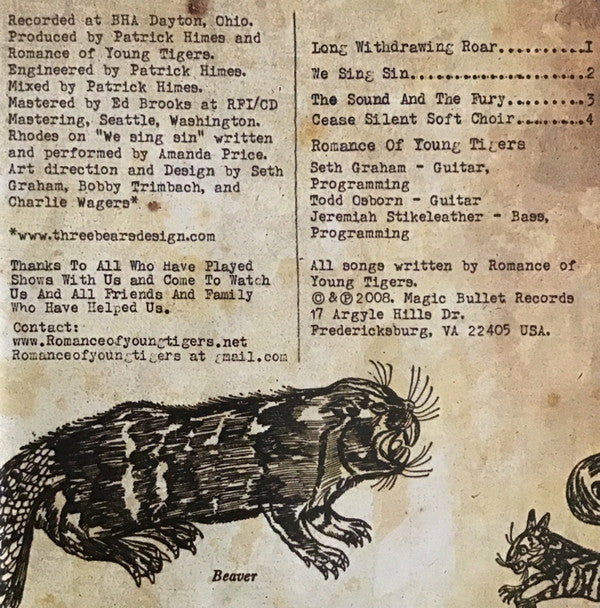 Recorded at BHA Dayton, Ohio.
Produced by Patrick Himes and
Romance of Young Tigers.
Engineered by Patrick Himes.
Mixed by Patrick Himes.
Mastered by Ed Brooks at RFI/CD
Mastering, Seattle, Washington.
Rhodes on "We sing sin" written
and performed by Amanda Price.
Art direction and Design by Seth
Graham, Bobby Trimbach, and
Charlie Wagers*
*www.threebearsdesign.com
Thanks To All Who Have Played
Shows With Us and Come To Watch
Us And All Friends And Family
Who Have Helped Us.
Contact:
www.Romanceofyoungtigers.net
Romanceofyoungtigers at gmail.com
Long Withdrawing Roar..........1
We Sing Sin....................2
The Sound And The Fury.........3
Cease Silent Soft Choir........4
Romance Of Young Tigers
Seth Graham - Guitar,
Programming
Todd Osborn - Guitar
Jeremiah Stikeleather - Bass,
Programming
All songs written by Romance of
Young Tigers.
©&℗2008. Magic Bullet Records
17 Argyle Hills Dr.
Fredericksburg, VA 22405 USA.
Beaver